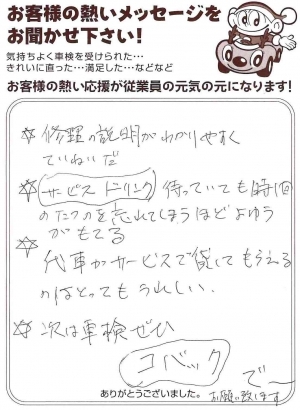 お客様の熱いメッセージを
お聞かせ下さい!
気持ちよく車検を受けられた…
きれいに直った…満足した…などなど
お客様の熱い応援が従業員の元気の元になります!
☆ 修理の説明がわかりやすく
ていねいだ
☆ サービスドリンク 待っていても時間
のたつのを忘れてしまうほどよゆう
がもてる
☆ 代車がサービスで貸してもらえる
のはとってもうれしい.
☆ 次は車検ぜひ
コバック
で〜
お願い致します
ありがとうございました。